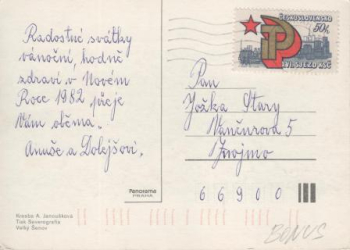 Radostné svátky
vánoční, hodně
zdraví v Novém
Roce 1982 přeje
Vám oběma.
Anuše a Dolejšovi.
ČESKOSLOVENSKO
50h
XVI. SJEZD KSČ
Pan
Jožka Starý
Vančurova 5
Znojmo
66900
Panorama
PRAHA
Kresba K.
Tisk Severografia
Velký Šenov
BONUS